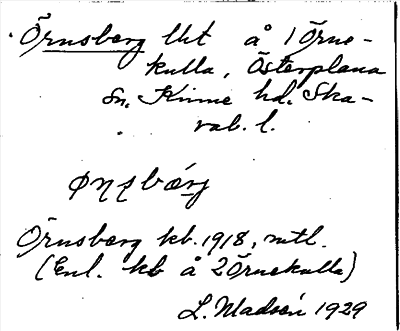 Örnsberg lht å 1 Örne-
kulla, Österplana
sn, Kinne hd. Ska-
rab. l.
Örnsberg kb. 1918, mtl.
(Enl. kb å 2 Örnekulla)
L. Madsén 1929